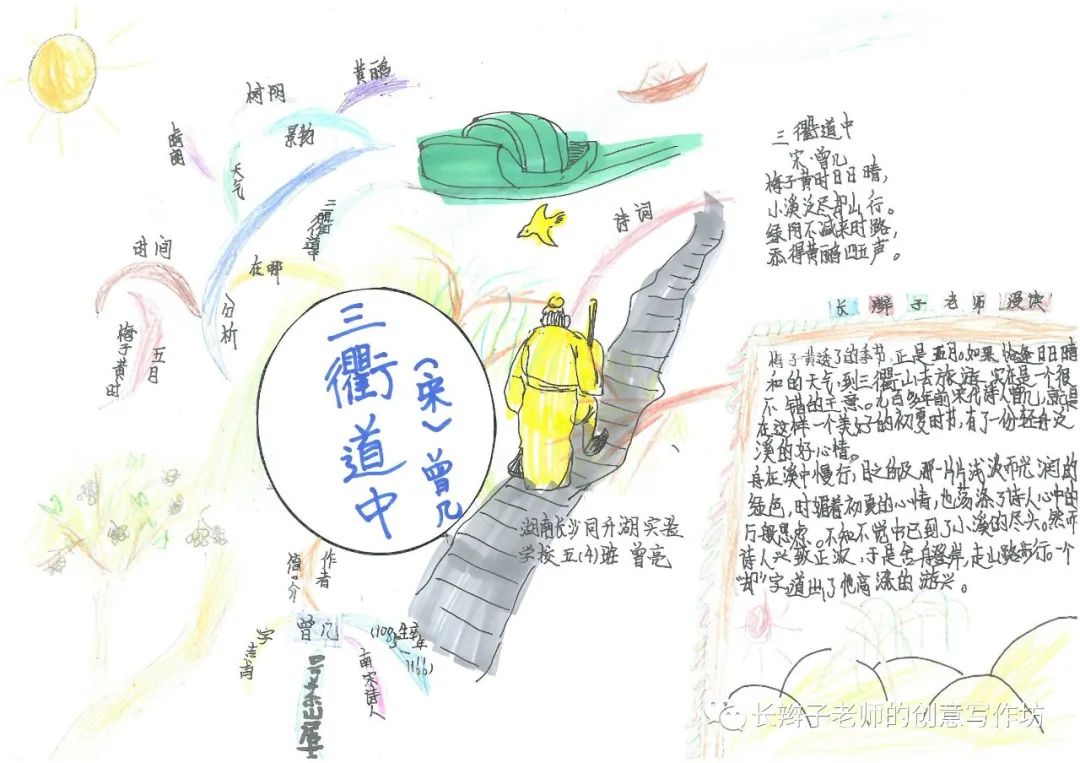 黄鹂
树阴
景物
晴朗
天气
三衢山
时间
在哪
分析
梅子黄时
五月
三衢道中
(宋)曾几
作者
简介
曾几
字
吉甫
(1085年—
1166)
南宋诗人
茶山居士
诗词
湖南长沙同升湖实验
学校五(4)班 曾亮
三衢道中
宋·曾几
梅子黄时日日晴,
小溪泛尽却山行。
绿阴不减来时路,
添得黄鹂四五声。
长辫子老师漫读
梅子黄透了的季节,正是五月。如果恰逢日日晴
和的天气,到三衢山去旅游,实在是一个很
不错的主意。九百多年前宋代诗人曾几,就是
在这样一个美好的初夏时节,有了一份轻舟泛
溪的好心情。
舟在溪中慢行,目之所及,那一片片浅淡而光润的
绿色,时媚着初夏的心情,也荡涤了诗人心中的
万般思虑。不知不觉中已到了小溪的尽头。然而
诗人兴致正浓,于是舍舟登岸,走山路步行一个
“却”字道出了他高涨的游兴。
长辫子老师的创意写作坊